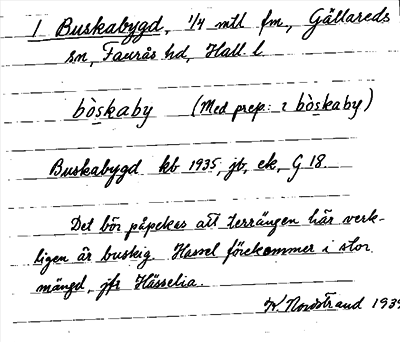 1 Buskabygd, 1/4 mtl fm, Gällareds
sn, Faurås hd, Hall. l.
bòskaby (Med prep.: i bòskaby)
Buskabygd kb 1935, jb, ek, G 18.
Det bör påpekas att terrängen här verk-
ligen är buskig. Hassel förekommer i stor
mängd, jfr Hässelia.
K. Nordstrand 1939